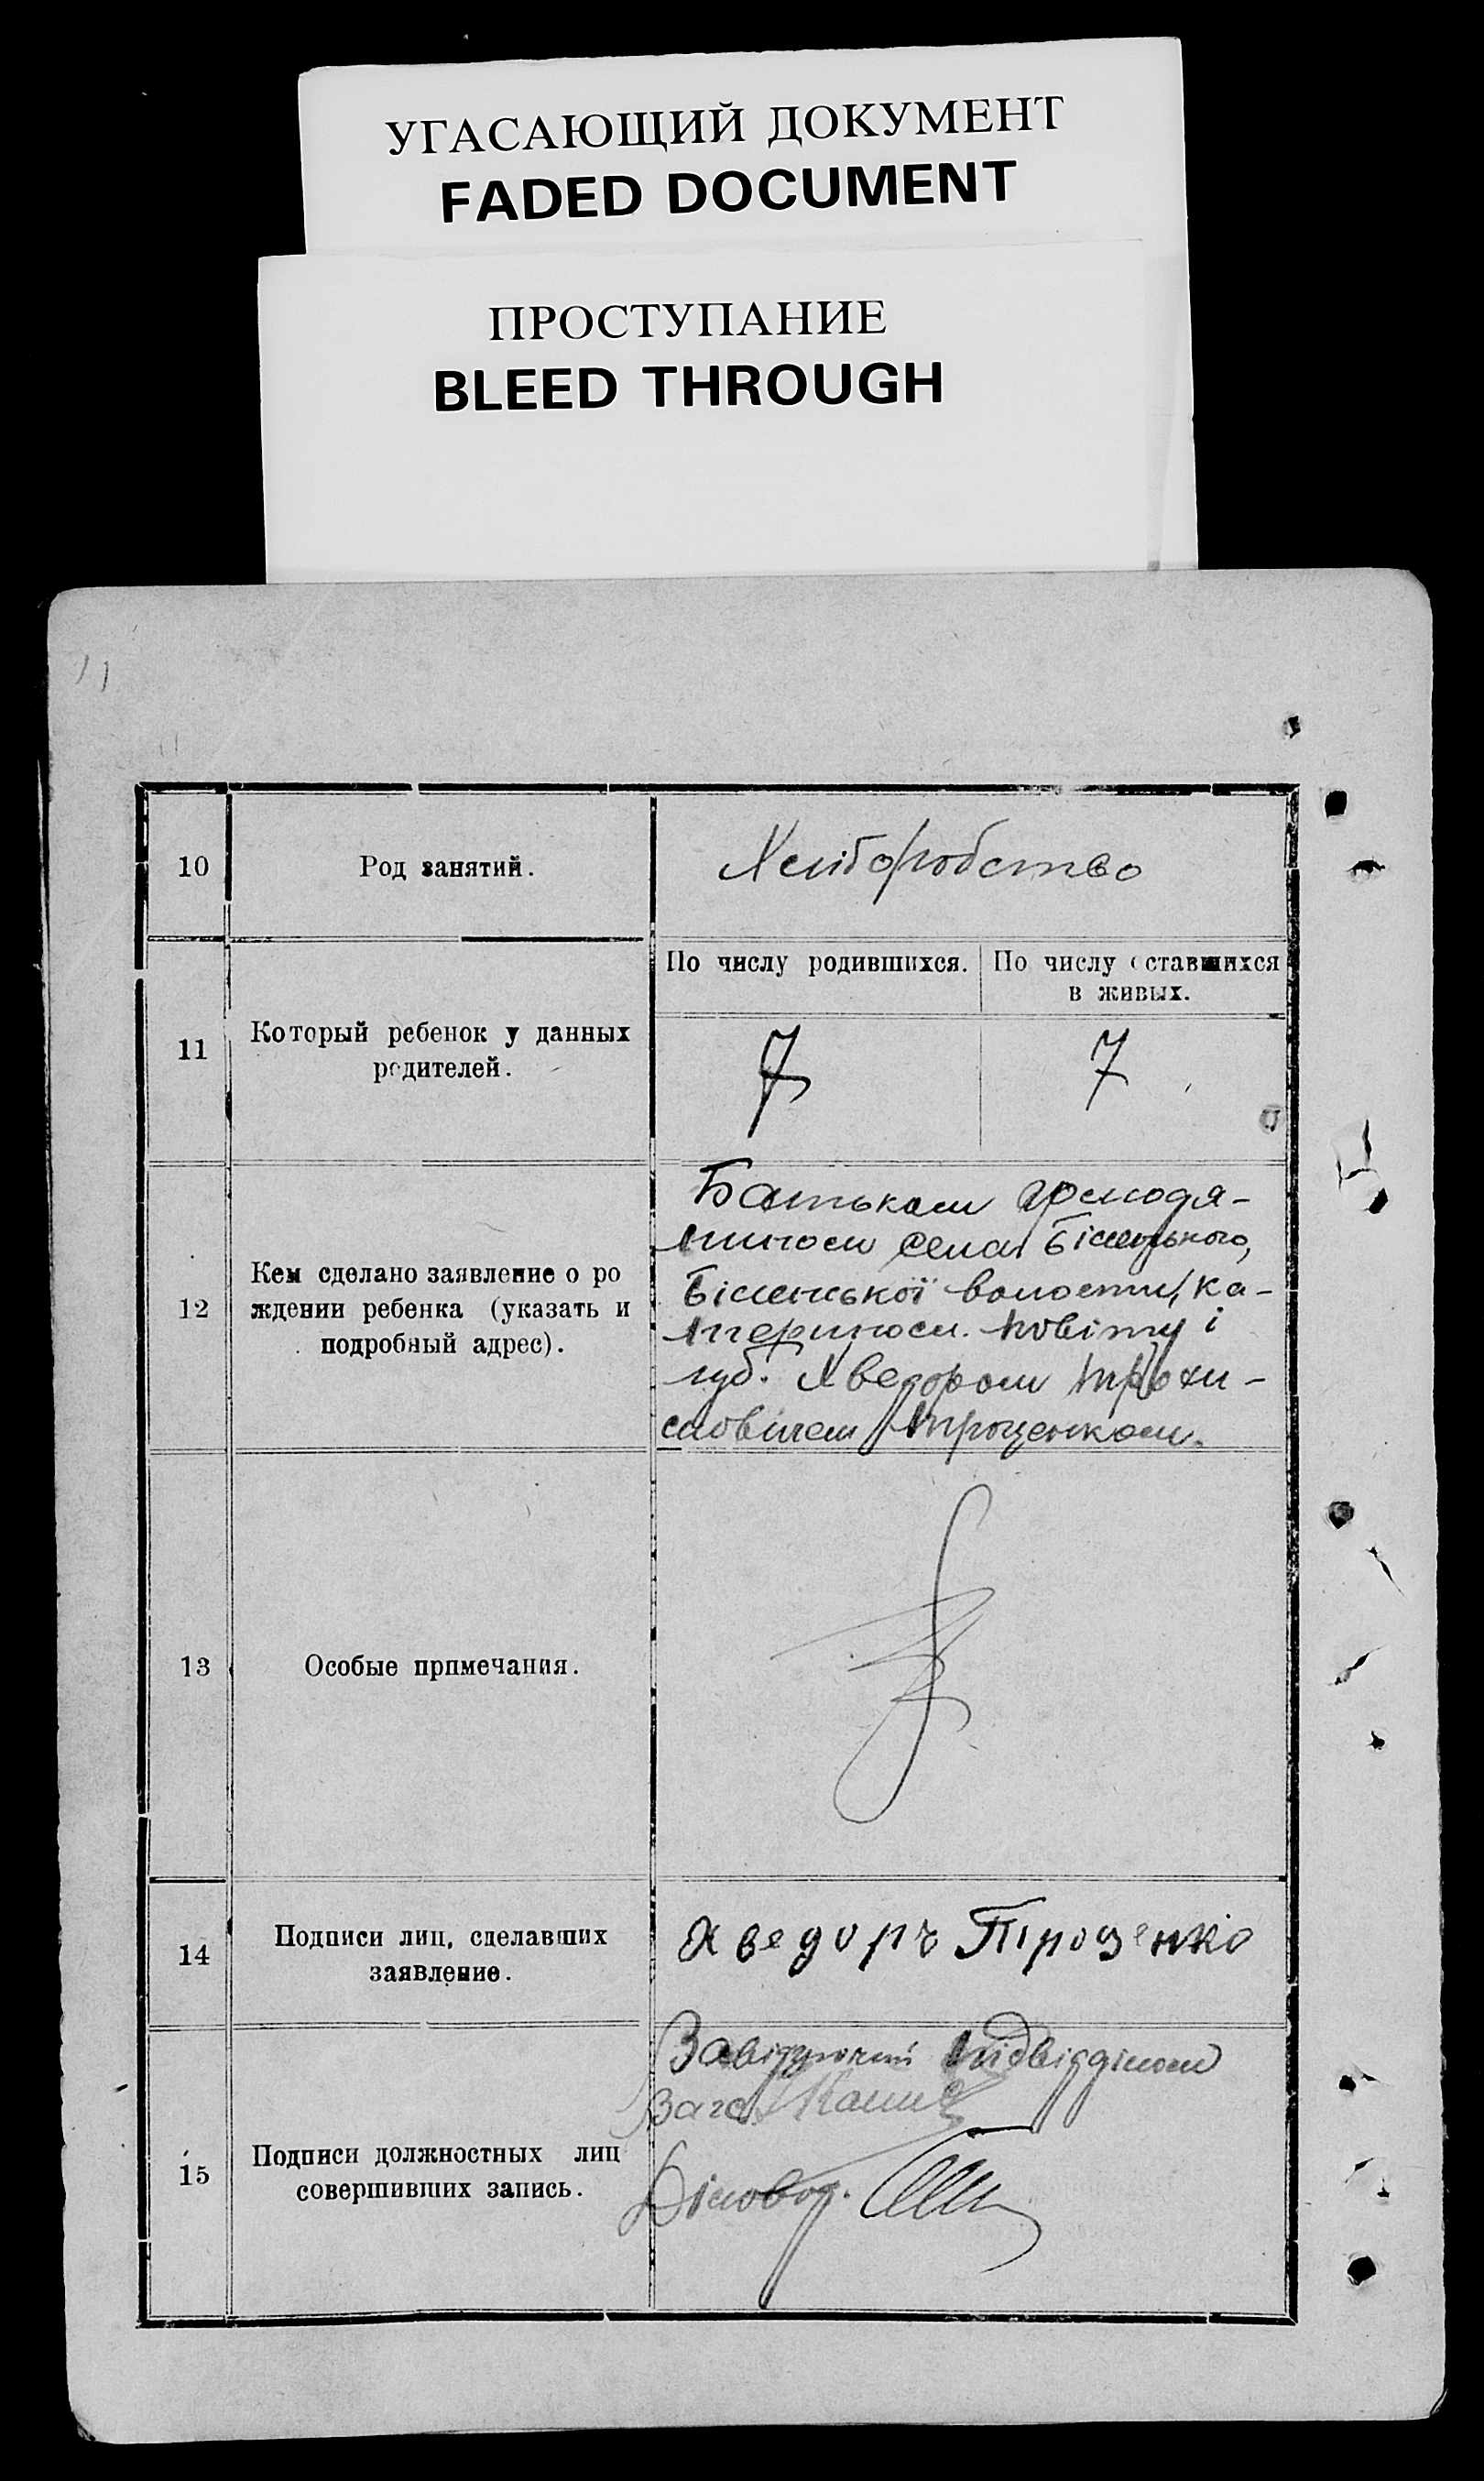 УГАСАЮЩИЙ ДОКУМЕНТ
FADED DOCUMENT
ПРОСТУПАНИЕ
BLEED THROUGH
10
Род занятий.
Хліборобство
11
Который ребенок у данных
родителей.
По числу родившихся.
По числу оставшихся
в живых.
7
7
12
Кем сделано заявление о ро
ждении ребенка (указать и
подробный адрес).
Батьком громодя-
нином села Біленького,
Біленької волости, Ка-
терином. повіту і
губ. Хведором Трохи-
мовічем Троценком.
13
Особые примечания.
14
Подписи лиц, сделавших
заявление.
Хведоръ Троценко
15
Подписи должностных лиц
совершивших запись.
Завідуючий підвідділом
Загс.
Діловод.